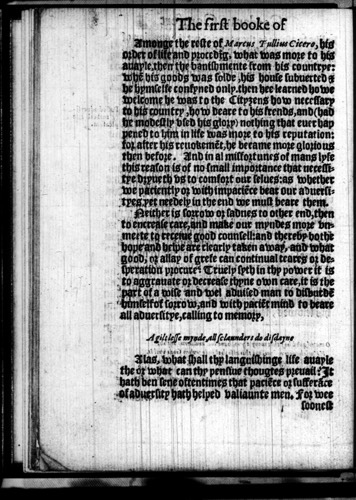 The first booke of
Amonge the reste of Marcus Tullius Cicero, his
order of life and procedīg, what was more to his
auayle, then the banishmente from his countrye:
whē his goods was solde, his house subuerted &
he hymselfe confyned only, then hee learned how
welcome he was to the Cityzens how necessary
to his country, how deare to his frends, and (had
he modestly vsed his glory) nothing that euer hap
pened to him in life was more to his reputation:
for after his reuokemēt, he became more glorious
then before. And in al misfortunes of mans lyfe
this reason is of no small importance that necessi-
tye dryueth vs to comfort our selues: as whether
we paciently or with impaciēce bear our aduersi-
tyes, yet needely in the end we must beare them.
Neither is sorrow or sadnes to other end, then
to encrease care, and make our myndes more vn-
meete to receyue good counsell: and thereby bothe
hope and helpe are clearly taken away, and what
good, or assay of grefe can continual teares or de-
speration procure? Truely syth in thy power it is
to aggrauate or decrease thyne own care, it is the
part of a wise and wel aduised man to disburdē
himself of sorrow, and with paciēt mind to beare
all aduersitye, calling to memory,
A giltlesse mynde, all sclaunders do disdayne
Alas, what shall thy languishinge life auayle
the or what can thy pensiue thougtes preuail? It
hath ben sene oftentimes that paciēce or sufferāce
of aduersity hath helped valiaunte men. For wee
soonest